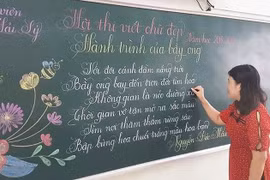 viên
Hội thi viết chữ đẹp
Hành trình của bầy ong
Với đôi cánh đẫm nắng trời
Bầy ong bay đến trọn đời tìm hoa
Không gian là nẻo đường xa
Thời gian vô tận mở ra sắc màu
Tìm nơi thăm thẳm rừng sâu
Bập bùng hoa chuối trắng màu hoa ban
Nguyễn Đức